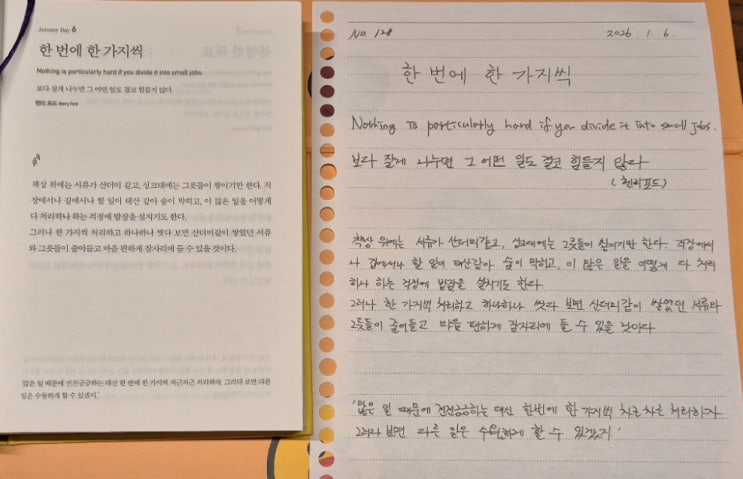 January Day 6
한 번에 한 가지씩
Nothing is particularly hard if you divide it into small jobs.
보다 잘게 나누면 그 어떤 일도 결코 힘들지 않다.
헨리 포드 Henry Ford
책상 위에는 서류가 산더미 같고, 싱크대에는 그릇들이 쌓이기만 한다. 직
장에서나 집에서나 할 일이 태산 같아 숨이 막히고, 이 많은 일을 어떻게
다 처리하나 하는 걱정에 밤잠을 설치기도 한다.
그러나 한 가지씩 처리하고 하나하나 씻다 보면 산더미같이 쌓였던 서류
와 그릇들이 줄어들고 마음 편하게 잠자리에 들 수 있을 것이다.
'많은 일 때문에 전전긍긍하는 대신 한 번에 한 가지씩 차근차근 처리하자. 그러다 보면 다른
일은 수월하게 할 수 있겠지.'
No. 128
2026. 1. 6.
한 번에 한 가지씩
Nothing is particularly hard if you divide it into small jobs.
보다 잘게 나누면 그 어떤 일도 결코 힘들지 않다
(헨리포드)
책상 위에는 서류가 산더미같고, 싱크대에는 그릇들이 쌓이기만 한다. 직장에서
나 집에서나 할 일이 태산같아 숨이 막히고, 이 많은 일을 어떻게 다 처리
하나 하는 걱정에 밤잠을 설치기도 한다.
그러나 한 가지씩 처리하고 하나하나 씻다 보면 산더미같이 쌓였던 서류와
그릇들이 줄어들고 마음 편하게 잠자리에 들 수 있을 것이다
'많은 일 때문에 전전긍긍하는 대신 한번에 한 가지씩 차근차근 처리하자
그러다 보면 다른 일은 수월하게 할 수 있겠지.'